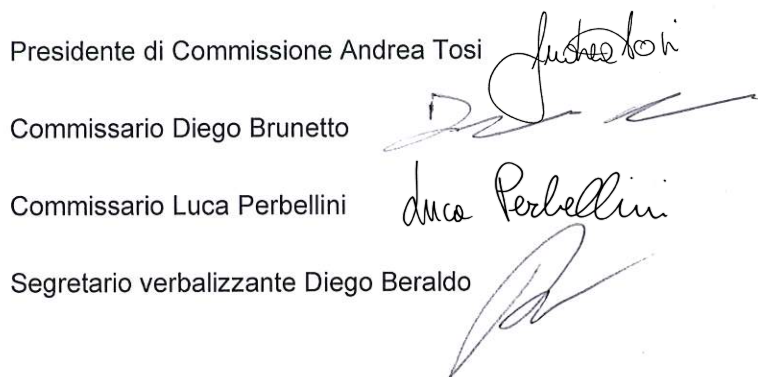 Presidente di Commissione Andrea Tosi Andrea Tosi
Commissario Diego Brunetto
Commissario Luca Perbellini Luca Perbellini
Segretario verbalizzante Diego Beraldo